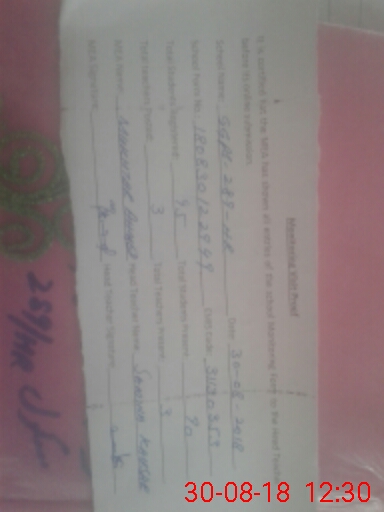 Monitoring Visit Proof
It is certified that the MEA has shown all entries of the school Monitoring Form to the Head Teacher
before its online submission.
School Name: GGPS-289-HR Date: 30-08-2018
School Form No.: 180830122949 EMIS Code: 31130353
Total Students Registered: 95 Total Students Present: 90
Total Teachers Posted: 3 Total Teachers Present: 3
MEA Name: Head Teacher Name:
MEA Signature: Head Teacher Signature:
289/HR
30-08-18 12:30